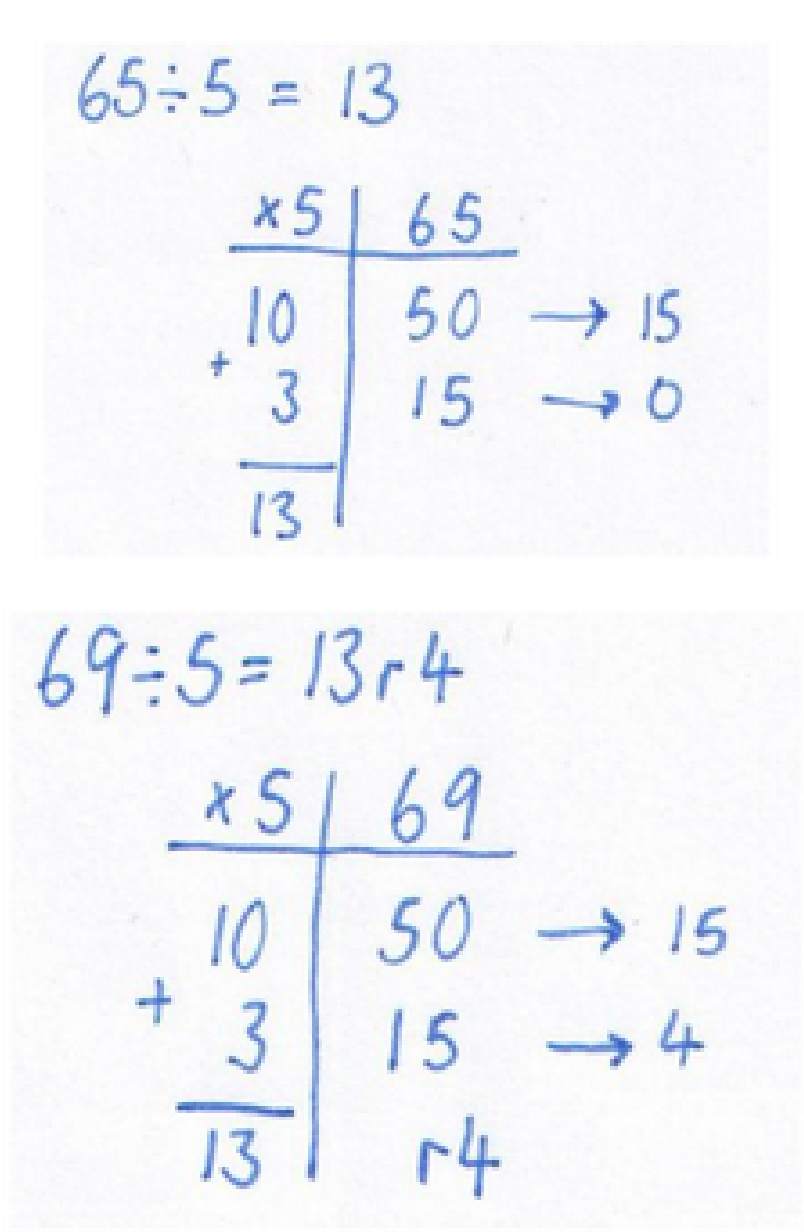 65÷5 = 13
×5 | 65
10 | 50 → 15
+
3 | 15 → 0
13
69÷5= 13 r 4
×5 | 69
10 | 50 → 15
+
3 | 15 → 4
13 | r4